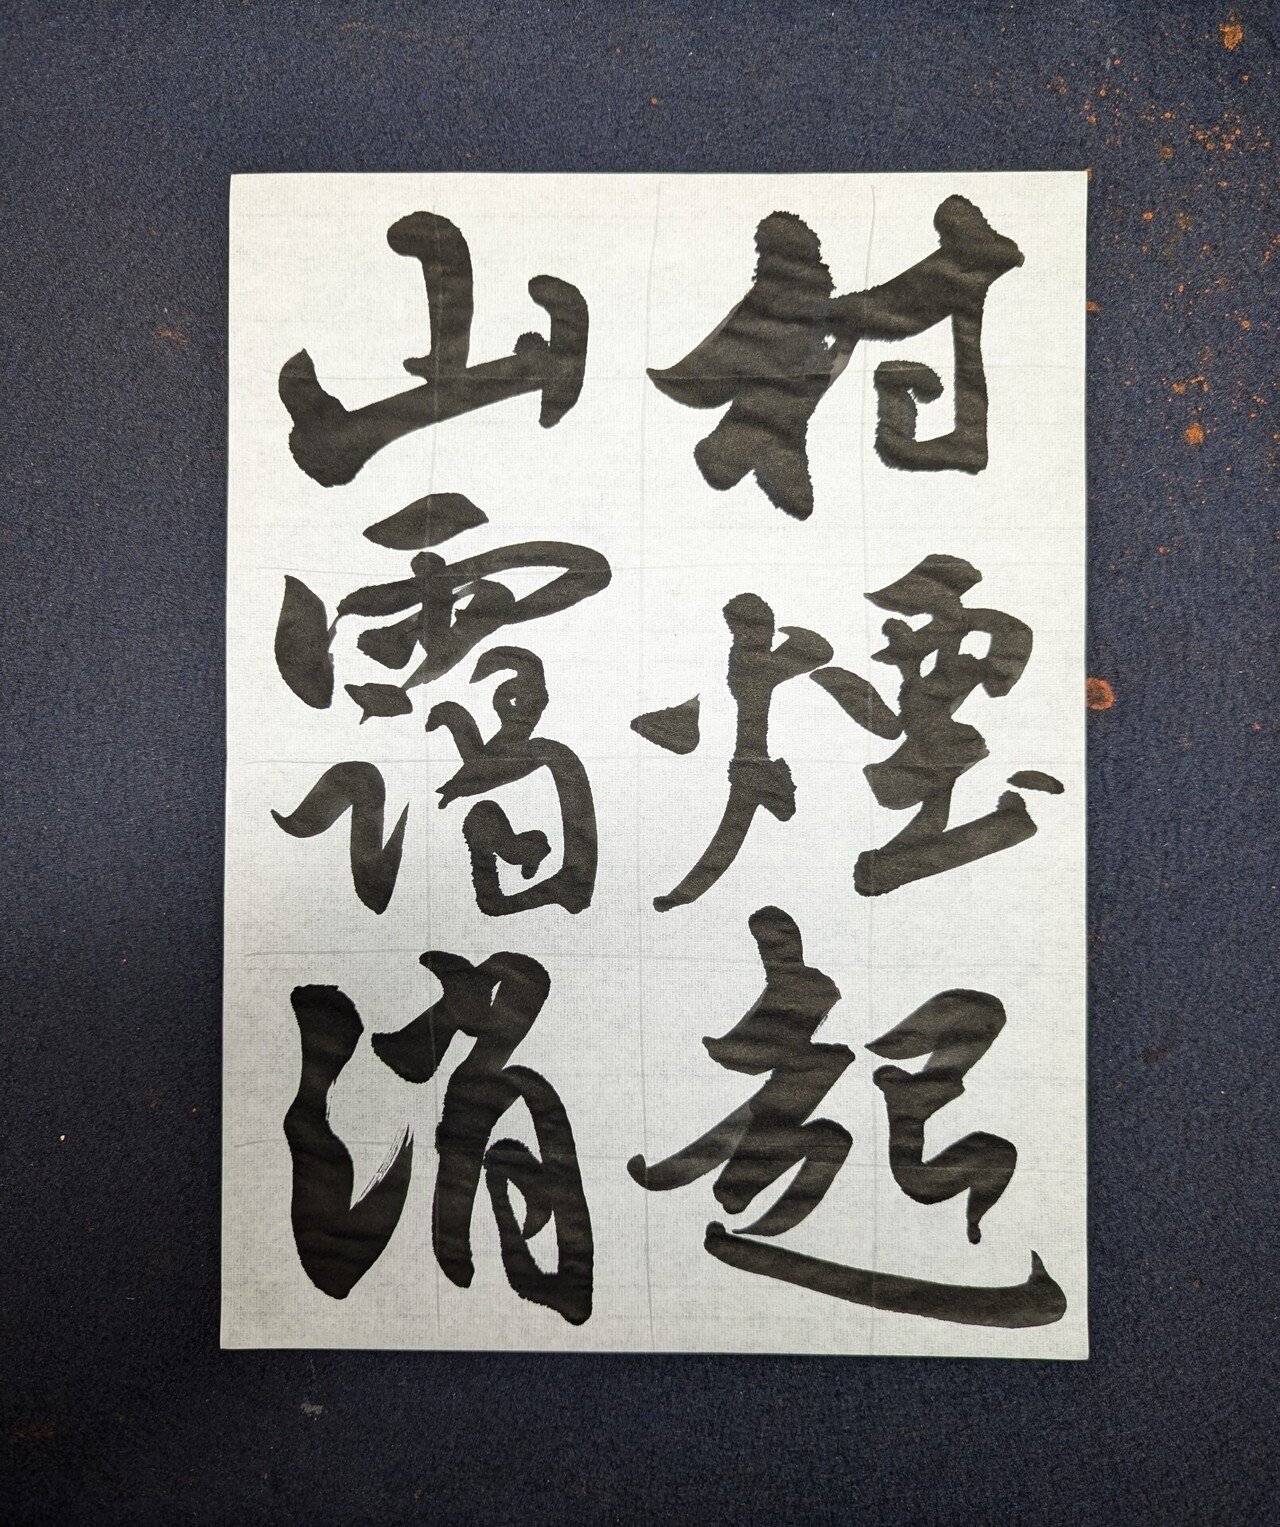 村煙起
山靄消